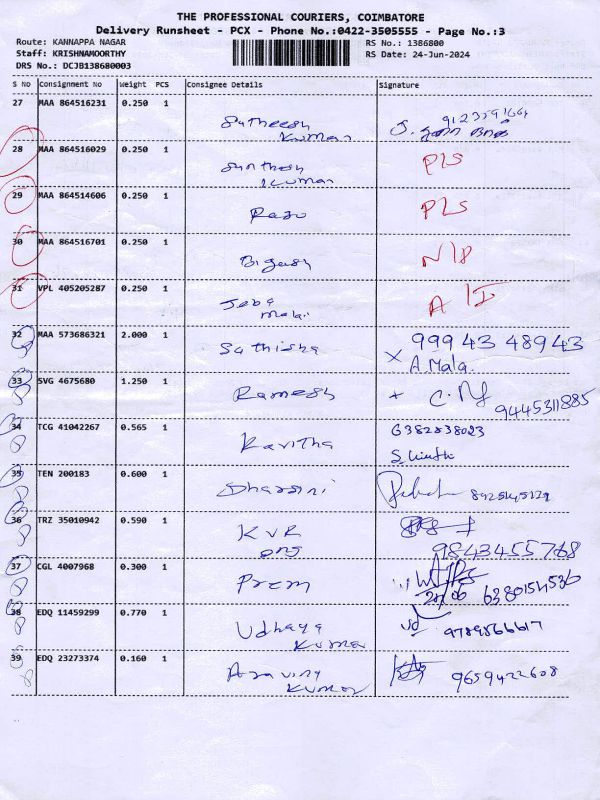 THE PROFESSIONAL COURIERS, COIMBATORE
Delivery Runsheet - PCX - Phone No.:0422-3505555 - Page No.:3
Route: KANNAPPA NAGAR
RS No.: 1386800
Staff: KRISHNAMOORTHY
RS Date: 24-Jun-2024
DRS No.: DCJB138680003
S No Consignment No Weight PCS Consignee Details Signature
27 MAA 864516231 0.250 1 Sutheesh Kumar
28 MAA 864516029 0.250 1 Kumar PLS
29 MAA 864514606 0.250 1 Raju PLS
30 MAA 864516701 0.250 1 N/P
31 VPL 405205287 0.250 1 Jeba Malai A/I
32 MAA 573686321 2.000 1 Sathisha 99943 48943
A. Mala.
33 SVG 4675680 1.250 1 Ramesh 9445311885
34 TCG 41042267 0.565 1 Kavitha 6382838023
35 TEN 200183 0.600 1 Dharsini
36 TRZ 35010942 0.590 1 KVR 9843455768
37 CGL 4007968 0.300 1 Prem 6380154536
38 EDQ 11459299 0.770 1 Udhaya Kumar 9789866617
39 EDQ 23273374 0.160 1 Aravind Kumar 9659422608